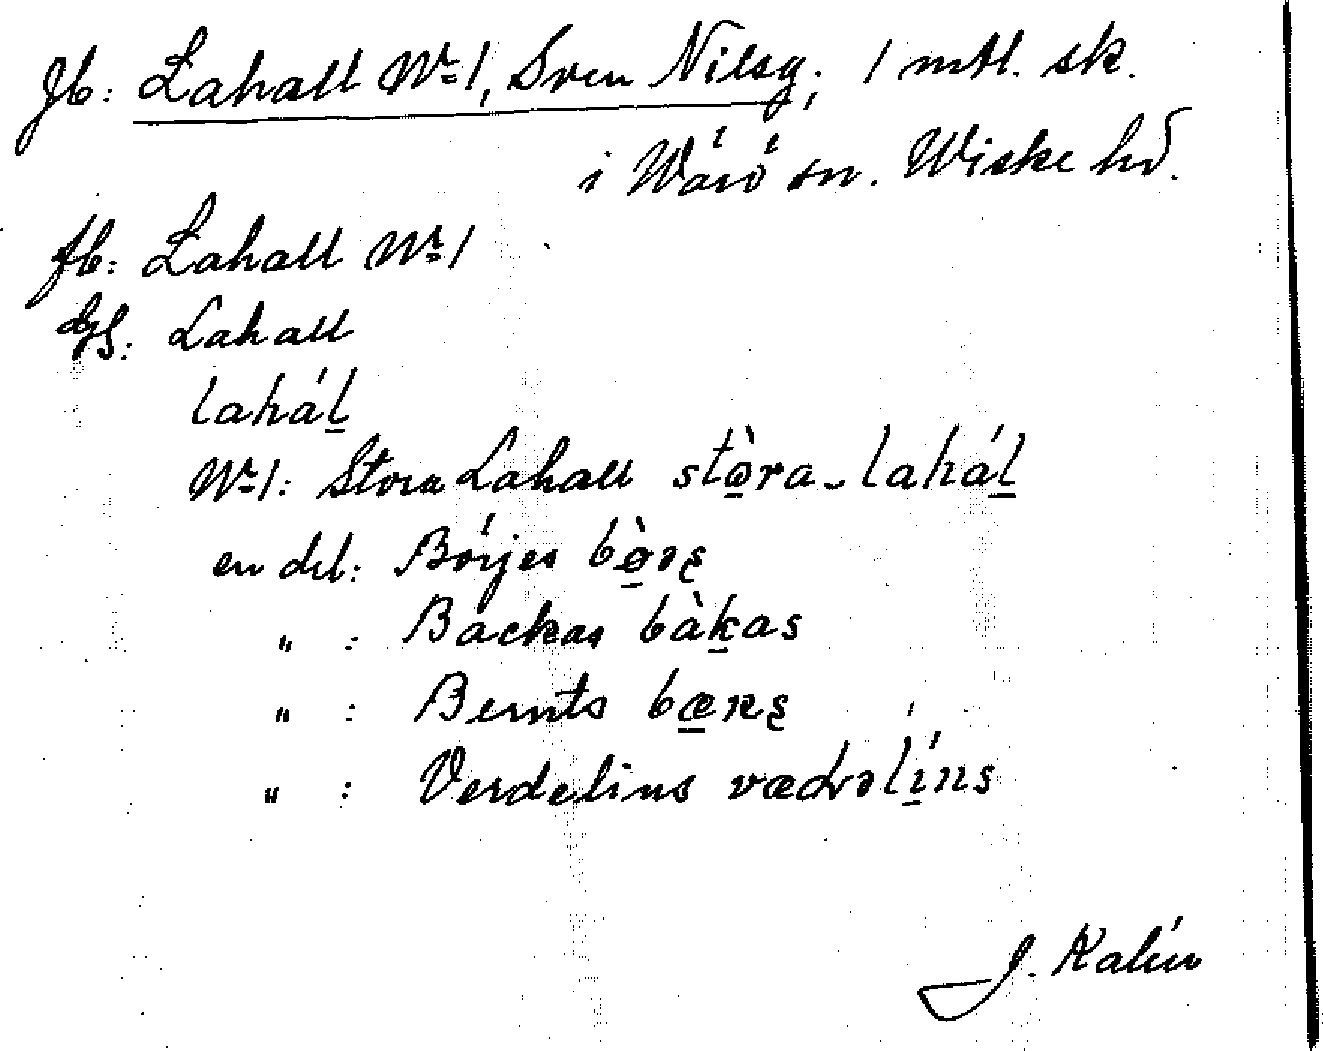 Jb: Lahall No 1, Sven Nilsg; 1 mtl. sk.
i Wärö sn. Wiske hd.
fb: Lahall No 1
Lahall
lahál
No 1: Stora Lahall stòra-lahál
en del: Börjes
" : Backas bàkas
" : Bernts
" : Verdelins
J. Kalén